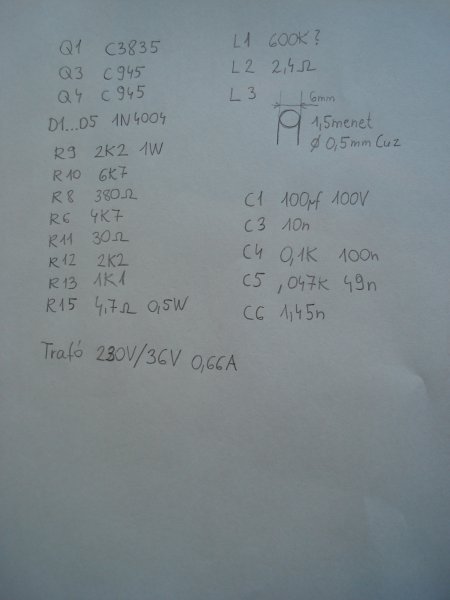 Q1 C3835
Q3 C945
Q4 C945
D1...D5 1N4004
R9 2K2 1W
R10 6K7
R8 380Ω
R6 4K7
R11 30Ω
R12 2K2
R13 1K1
R15 4,7Ω 0,5W
Trafó 230V/36V 0,66A
L1 600K?
L2 2,4Ω
L3
6mm
1,5menet
Ø 0,5mm Cuz
C1 100µf 100V
C3 10n
C4 0,1K 100n
C5 ,047K 49n
C6 1,45n